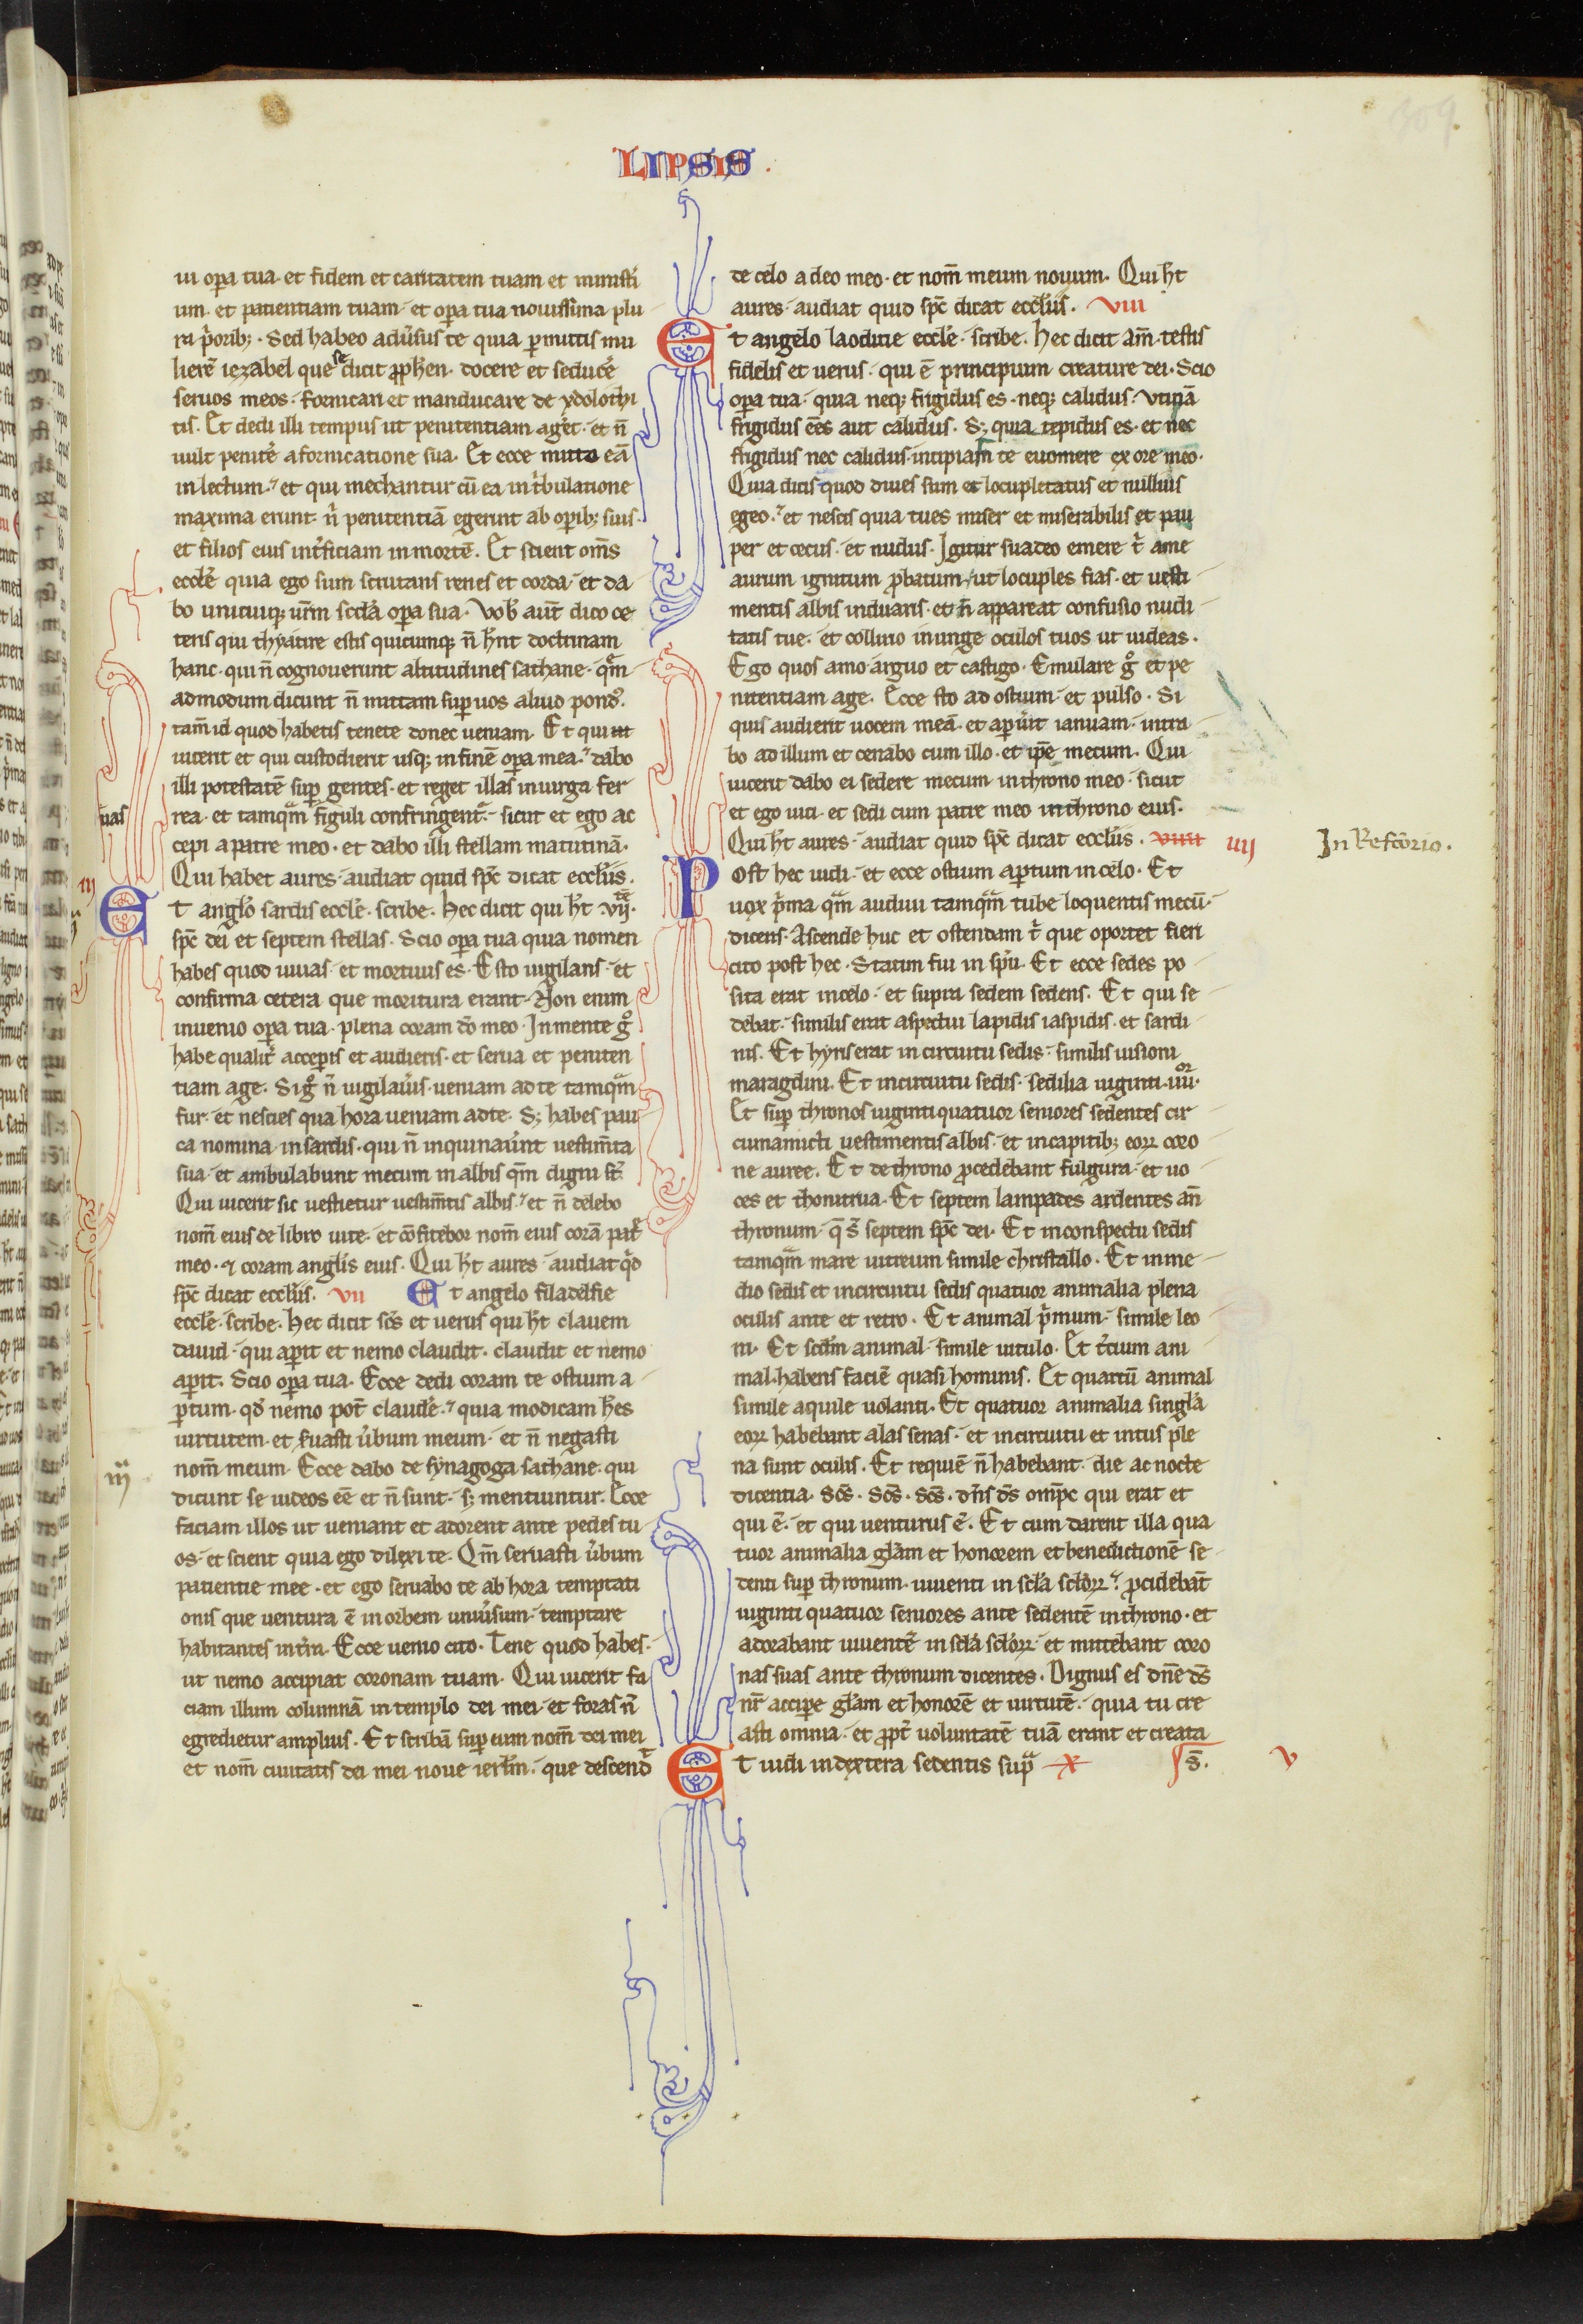 309.
LIPSIS.
ui opera tua. et fidem et caritatem tuam et ministeri
um. et patientiam tuam. et opera tua nouissima plu
ra p̃orib; . Sed habeo adũsus te quia permittis mu
lierẽ iezabel que se dicit ꝓph̃en. docere et seducẽ
seruos meos. fornicari et manducare de ydolothi
tis. Et dedi illi tempus ut penitentiam ageret. et ñ
uult penitẽ a fornicatione sua. Et ecce mitto eã
in lectum. et qui mechantur cũ ea in t̃bulatione
maxima erunt. ñ penitentiã egerint ab opib; suis.
et filios eius int̃ficiam in mortẽ. Et scient om̃s
eccl̃e quia ego sum scrutans renes et corda. et da
bo unicuiq; ur̃m scd̃a opera sua. Vob̃ aut̃ dico ce
teris qui thyatire estis quicumq; ñ hñt doctrinam
hanc. qui ñ cognouerunt altitudines sathane. q̃m
admodum dicunt ñ mittam sup uos aliud pond̃.
tam̃ id quod habetis tenete donec ueniam. Et qui
uicerit et qui custodierit usq; in finẽ opera mea. dabo
illi potestatẽ sup gentes. et reget illas in uirga fer
uas
rea. et tamq̃m figuli confringent̃. sicut et ego ac
cepi a patre meo. et dabo illi stellam matutinã.
Qui habet aures. audiat quid sp̃c dicat eccl̃iis.
iij
Et angl̃o sardis eccl̃e. scribe. Hec dicit qui h̃t .vii.
sp̃c dei et septem stellas. Scio opera tua quia nomen
habes quod uiuas. et mortuus es. Esto uigilans. et
confirma cetera que moritura erant. Non enim
inuenio opera tua. plena coram dõ meo. In mente gͦ
habe qualit̃ acceperis et audieris. et serua et peniten
tiam age. Si gͦ ñ uigilaũis. ueniam ad te tamq̃m
fur. et nescies qua hora ueniam ad te. S; habes pau
ca nomina in sardis. qui ñ inquinaũint uestim̃ta
sua. et ambulabunt mecum in albis qm̃ digni st̃.
Qui uicerit sic uestietur uestim̃tis albis. et ñ delebo
nom̃ eius de libro uite. et cõfitebor nom̃ eius corã pat̃
meo. et coram anglis̃ eius. Qui h̃t aures audiat qͥd
sp̃c dicat eccl̃iis. vii Et angelo filadelfie
eccl̃e. scribe. Hec dicit sc̃s et uerus qui h̃t clauem
dauid. qui aperit et nemo claudit. claudit et nemo
aperit. Scio opera tua. Ecce dedi coram te ostium a
pertum. qd̃ nemo pot̃ claudẽ. quia modicam h̃es
uirtutem. et suasti ũbum meum. et ñ negasti
iija
nom̃ meum. Ecce dabo de synagoga sathane. qui
dicunt se iudeos eẽ et ñ sunt. s; mentiuntur. Ecce
faciam illos ut ueniant et adorent ante pedes tu
os. et scient quia ego dilexi te. Qm̃ seruasti ũbum
patientie mee. et ego seruabo te ab hora temptati
onis que uentura ẽ in orbem uniũsum. temptare
habitantes in tr̃a. Ecce uenio cito. Tene quod habes.
ut nemo accipiat coronam tuam. Qui uicerit fa
ciam illum columnã in templo dei mei. et foras ñ
egredietur amplius. Et scribã sup eum nom̃ dei mei
et nom̃ ciuitatis dei mei noue ierl̃m. que descend̃
de celo a deo meo. et nom̃ meum nouum. Qui h̃t
aures. audiat quid sp̃c dicat eccl̃iis. viii
Et angelo laoditie eccl̃e. scribe. Hec dicit am̃. testis
fidelis et uerus. qui ẽ principium creature dei. Scio
opera tua. quia neq; frigidus es. neq; calidus. Vtinã
frigidus eẽs aut calidus. S; quia tepidus es. et nec
frigidus nec calidus. incipiam te euomere ex ore meo.
Quia dicis quod diues sum et locupletatus et nullius
egeo. et nescis quia tu es miser et miserabilis et pau
per et cecus. et nudus. Igitur suadeo emere t̃ a me
aurum ignitum ꝓbatum. ut locuples fias. et uesti
mentis albis induaris. et ñ appareat confusio nudi
tatis tue. et collirio inunge oculos tuos ut uideas.
Ego quos amo arguo et castigo. Emulare gͦ et pe
nitentiam age. Ecce sto ad ostium. et pulso. Si
quis audierit uocem meã. et aperũit ianuam. intra
bo ad illum et cenabo cum illo. et ip̃e mecum. Qui
uicerit dabo ei sedere mecum in throno meo. sicut
et ego uici. et sedi cum patre meo in throno eius.
Qui h̃t aures. audiat quid sp̃c dicat eccl̃iis. viiii iiij In Refc̃torio.
Post hec uidi. et ecce ostium apertum in celo. Et
uox p̃ma q̃m audiui tamq̃m tube loquentis mecũ.
dicens. Ascende huc et ostendam t̃ que oportet fieri
cito post hec. Statim fui in sp̃u. Et ecce sedes po
sita erat in celo. et supra sedem sedens. Et qui se
debat. similis erat aspectui lapidis iaspidis. et sardi
nis. Et hyris erat in circuitu sedis. similis uisioni
maragdini. Et in circuitu sedis. sedilia uiginti .iiiior.
Et sup thronos uiginti quatuor seniores sedentes cir
cumamicti uestimentis albis. et in capitib; eoꝝ coro
ne auree. Et de throno ꝓcedebant fulgura. et uo
ces et thonitrua. Et septem lampades ardentes añ
thronum. q̃ s̃ septem sp̃c dei. Et in conspectu sedis
tamq̃m mare uitreum simile christallo. Et in me
dio sedis et in circuitu sedis quatuor animalia plena
oculis ante et retro. Et animal p̃mum. simile leo
ni. Et scd̃m animal. simile uitulo. Et t̃cium ani
mal. habens faciẽ quasi hominis. Et quartũ animal
simile aquile uolanti. Et quatuor animalia singl̃a
eoꝝ habebant alas senas. et in circuitu et intus ple
na sunt oculis. Et requiẽ ñ habebant. die ac nocte
dicentia. Sc̃s. Sc̃s. Sc̃s. dñs ds̃ omp̃c qui erat et
qui ẽ. et qui uenturus ẽ. Et cum darent illa qua
tuor animalia gl̃am et honorem et benedictionẽ se
denti sup thronum. uiuenti in scl̃a scl̃oꝝ. ꝓcidebãt
uiginti quatuor seniores ante sedentẽ in throno. et
adorabant uiuentẽ in scl̃a scl̃oꝝ. et mittebant coro
nas suas ante thronum dicentes. Dignus es dñe ds̃
nr̃ accipe gl̃am et honorẽ et uirtutẽ. quia tu cre
asti omnia. et ꝓpt̃ uoluntatẽ tuã erant et creata
Et uidi in dextera sedentis supᵃ x s̃. v